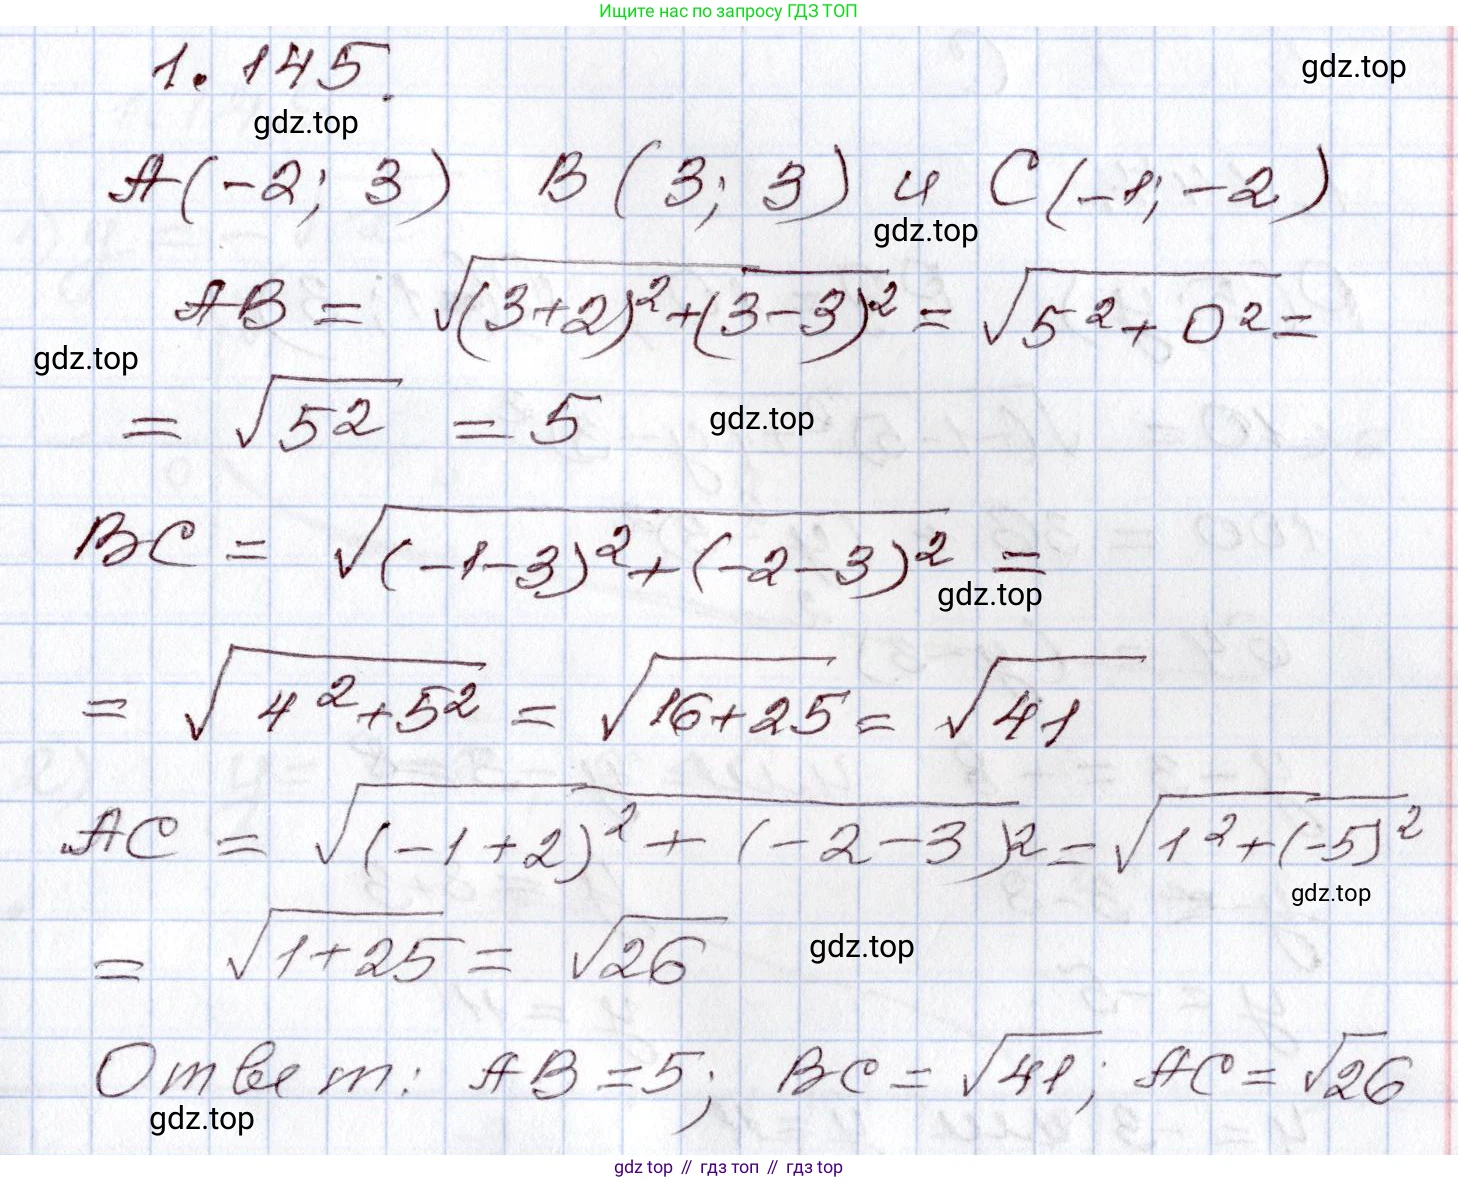 Ищите нас по запросу ГДЗ ТОП
1.145.
gdz.top
gdz.top
A(-2; 3) B(3; 3) и C(-1; -2)
gdz.top
AB = √((3+2)²+(3-3)²) = √(5²+0²) =
gdz.top
= √(5²) = 5
gdz.top
BC = √((-1-3)²+(-2-3)²) =
gdz.top
= √(4²+5²) = √(16+25) = √41
AC = √((-1+2)²+(-2-3)²) = √(1²+(-5)²)
gdz.top
= √(1+25) = √26
gdz.top
Ответ: AB=5; BC=√41; AC=√26
gdz.top
gdz top // гдз топ // гдз top